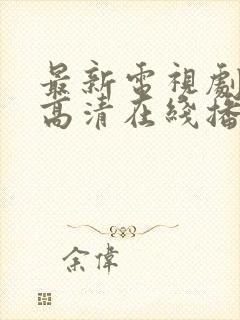 最新電視劇
高清在綫播
余偉